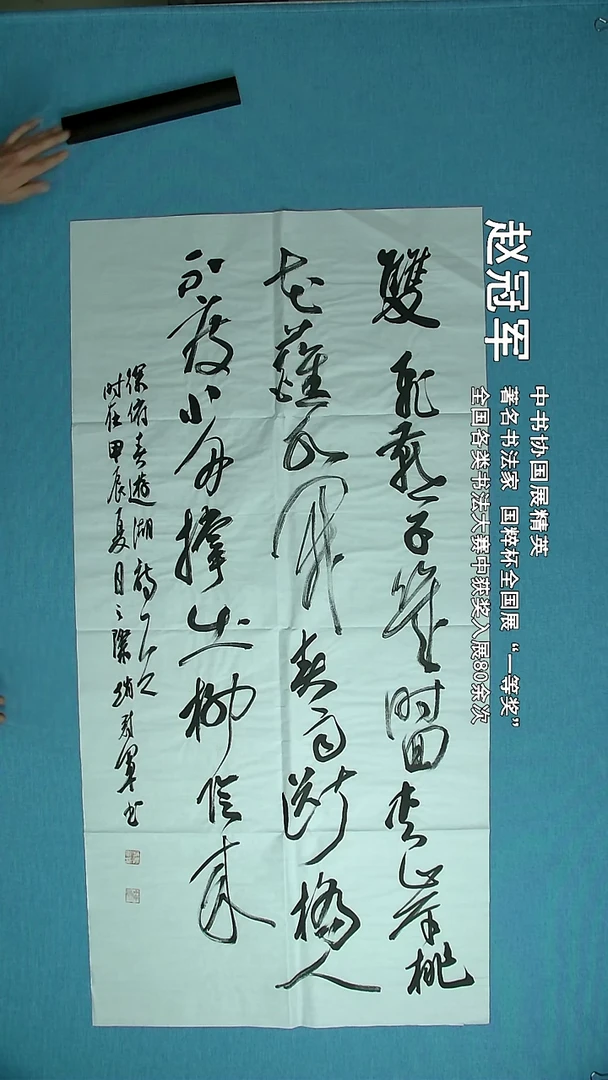 赵冠军
中书协国展精英
著名书法家 国粹杯全国展“一等奖”
全国各类书法大赛中获奖入展80余次
雙飛燕子幾时回夾岸桃
花蘸水開春雨斷橋人
不度小舟撑出柳陰来
徐俯春遊湖詩一首
时在甲辰夏月之際趙冠軍书